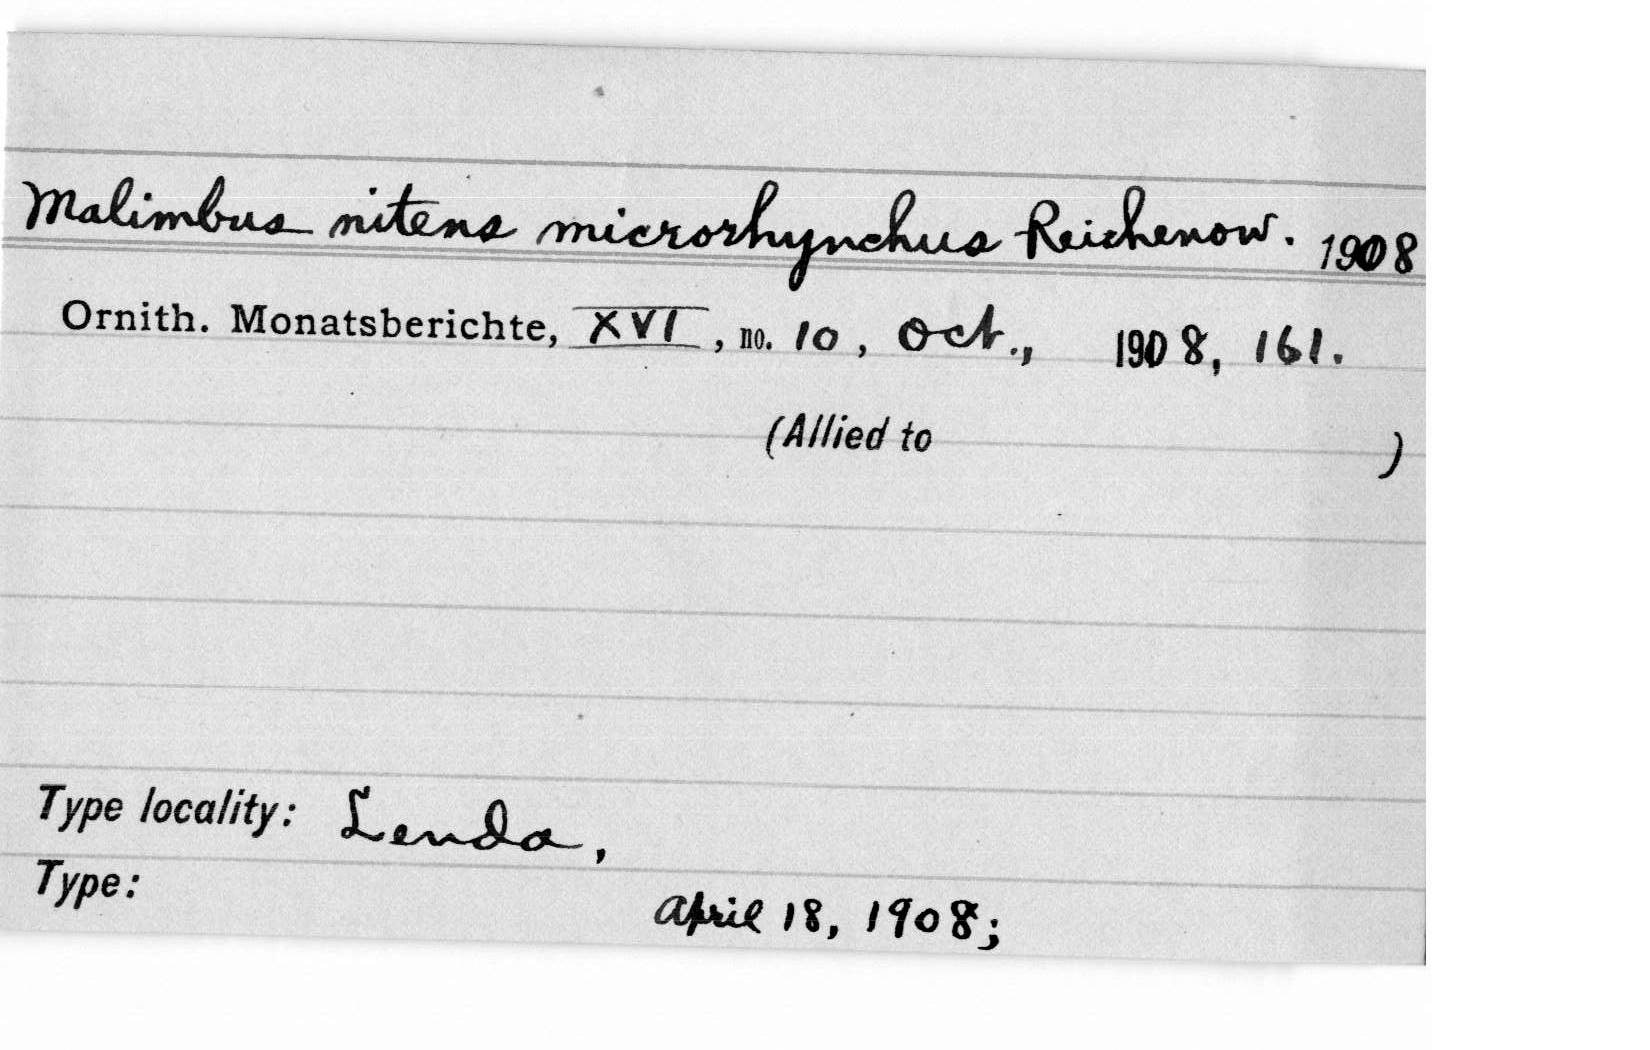 Malimbus nitens microrhynchus Reichenow. 1908
Ornith. Monatsberichte, XVI, no. 10, Oct., 1908, 161.
(Allied to )
Type locality: Lenda,
Type: April 18, 1908;